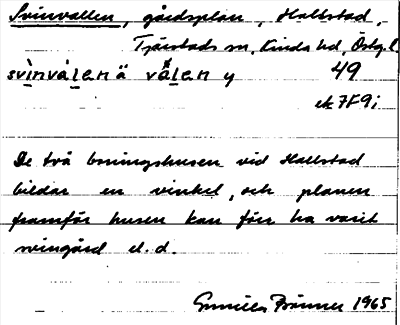 Svinvallen, gårdsplan, Hallstad,
Tjärstads sn, Kinda hd, Östg. l.
svìnvál̲en ä vål̲en y 49
ek 7F9i
De två boningshusen vid Hallstad
bildar en vinkel, och planen
framför husen kan förr ha varit
svingård el. d.
Gunilla 1965